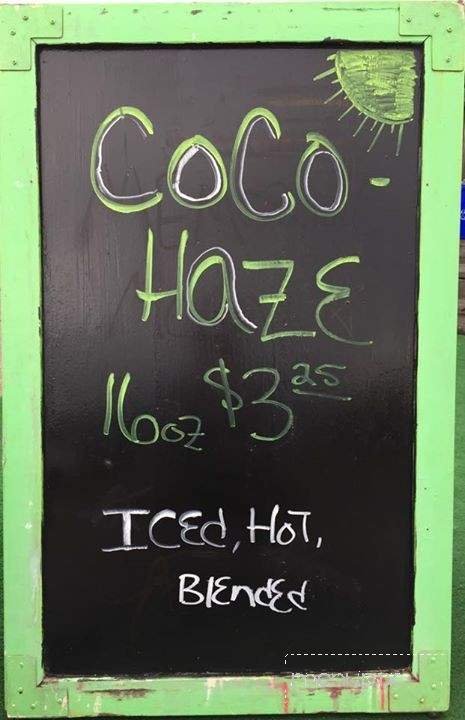 COCO-
HAZE
16oz $3 25
ICED, HOT,
BLENDED